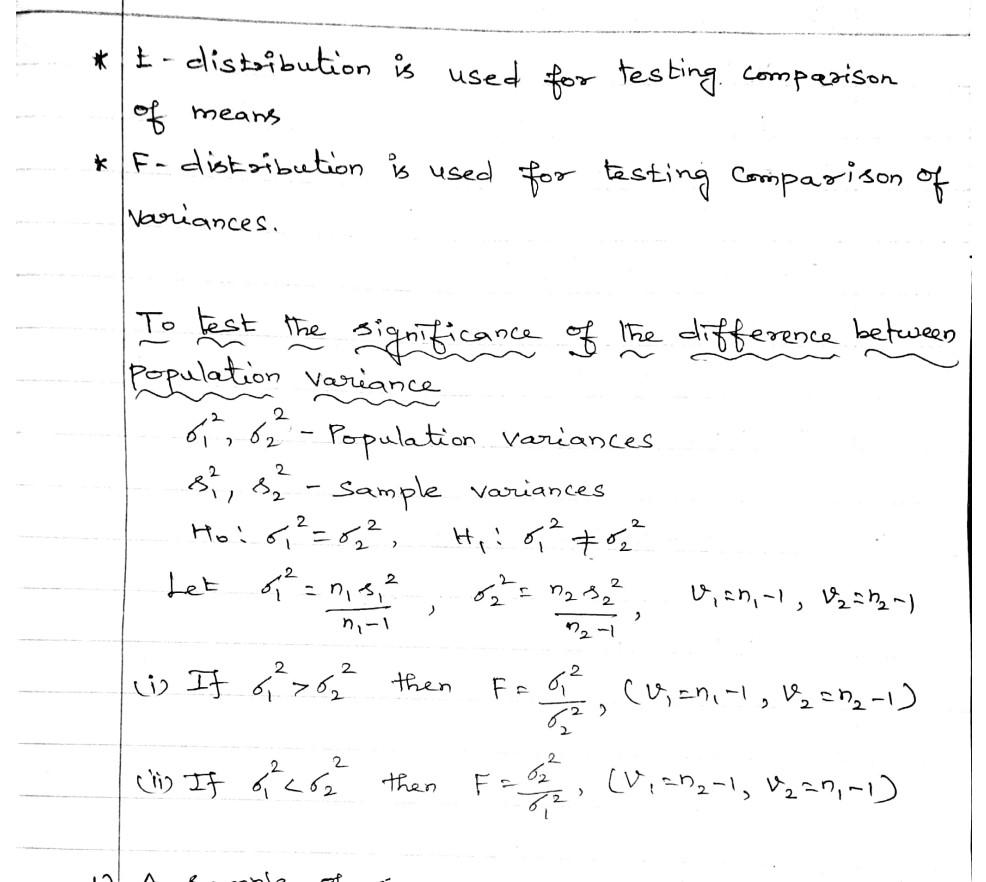 * t - distribution is used for testing. comparison
of means
* F - distribution is used for testing comparison of
variances.
To test the significance of the difference between
population variance
σ₁², σ₂² - Population variances
s₁², s₂² - sample variances
H₀: σ₁² = σ₂², H₁: σ₁² ≠ σ₂²
Let σ₁² = n₁s₁²/(n₁-1), σ₂² = n₂s₂²/(n₂-1), v₁=n₁-1, v₂=n₂-1
(i) If σ₁² > σ₂² then F = σ₁²/σ₂², (v₁=n₁-1, v₂=n₂-1)
(ii) If σ₁² < σ₂² then F = σ₂²/σ₁², (v₁=n₂-1, v₂=n₁-1)